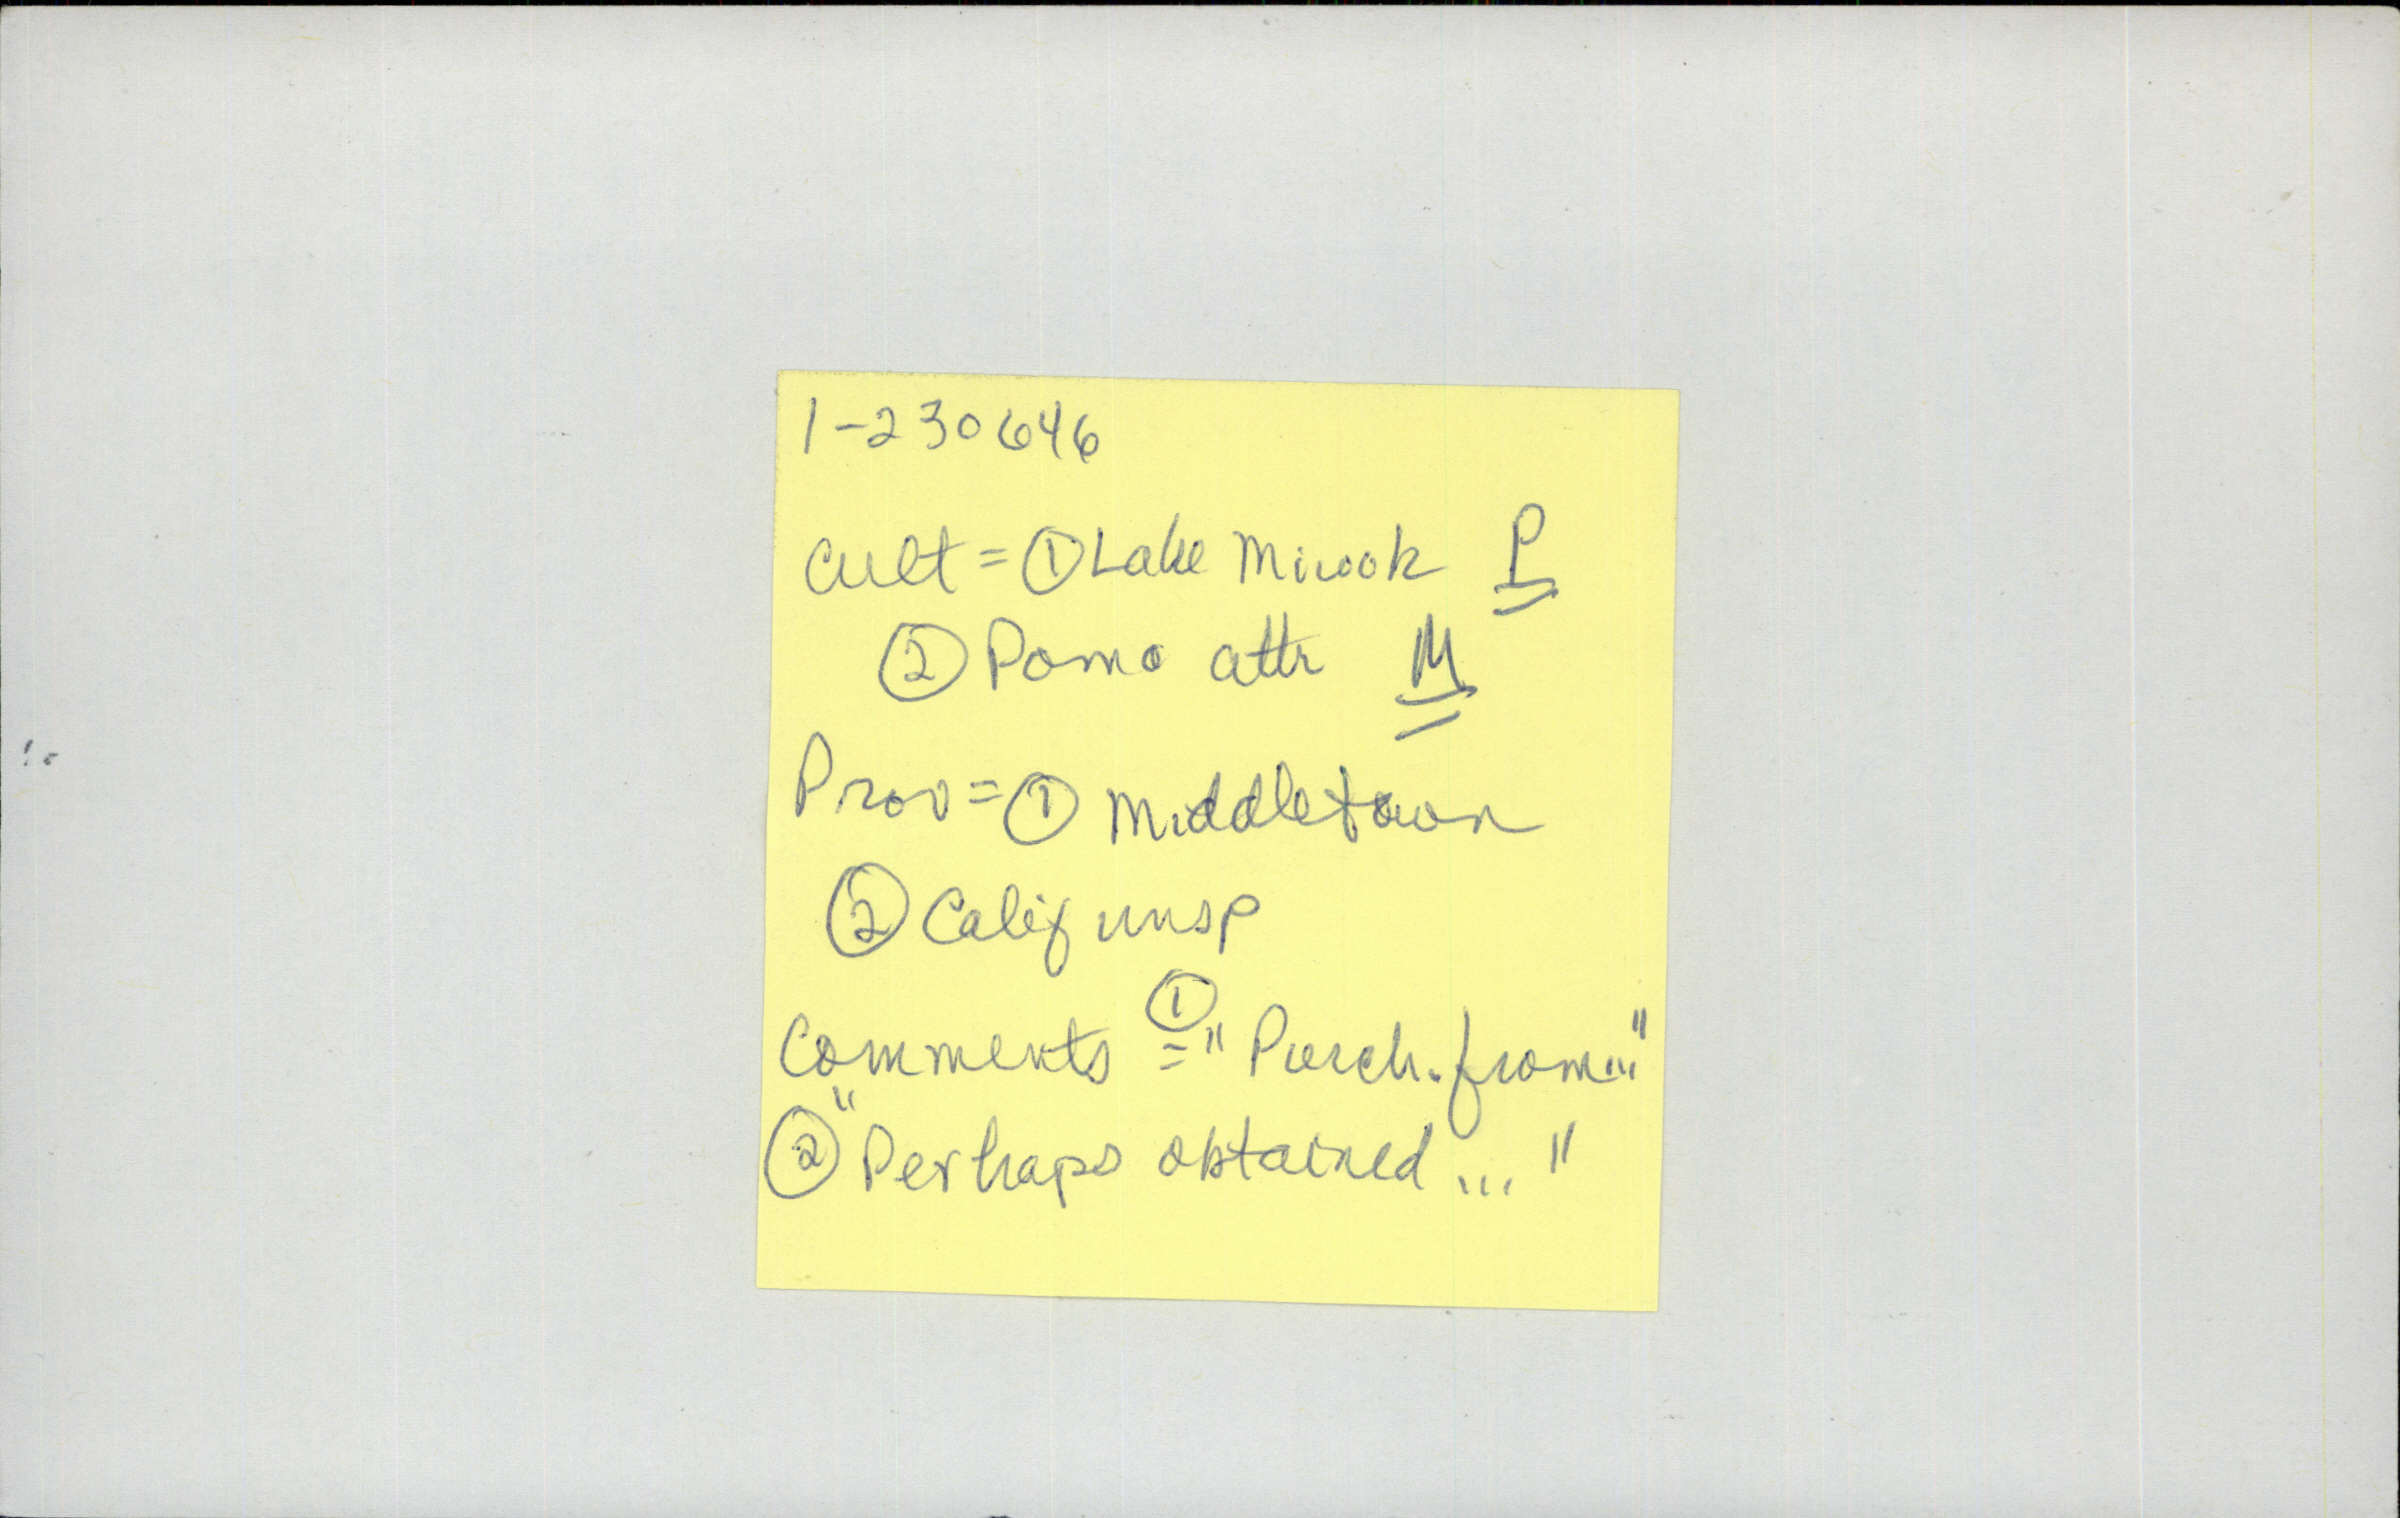 1-230646
Cult = ① Lake Miwok P
② Pomo attr M
Prov = ① Middletown
② Calif unsp
①
Comments = "Purch. from..."
② "Perhaps obtained ..."